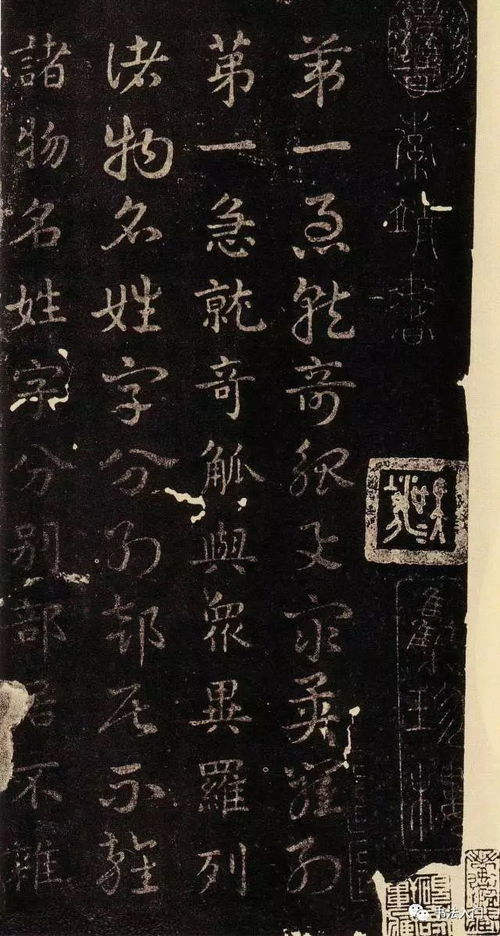 索靖書
苐一急就奇觚與衆異羅列
苐一急就奇觚與衆異羅列
諸物名姓字分別部居不雜
諸物名姓字分別部居不雜
书法入门